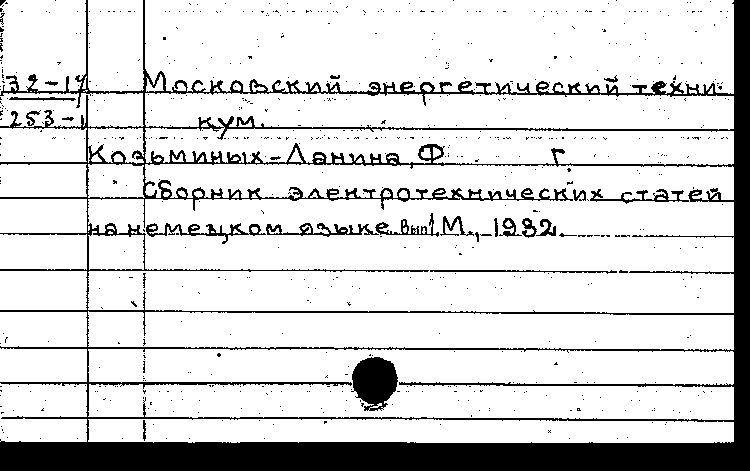 32-17 Московский энергетический техни-
253-1 кум.
Козьминых-Ланина, Ф Г.
Сборник электротехнических статей
на немецком языке. Вып1. М., 1932.